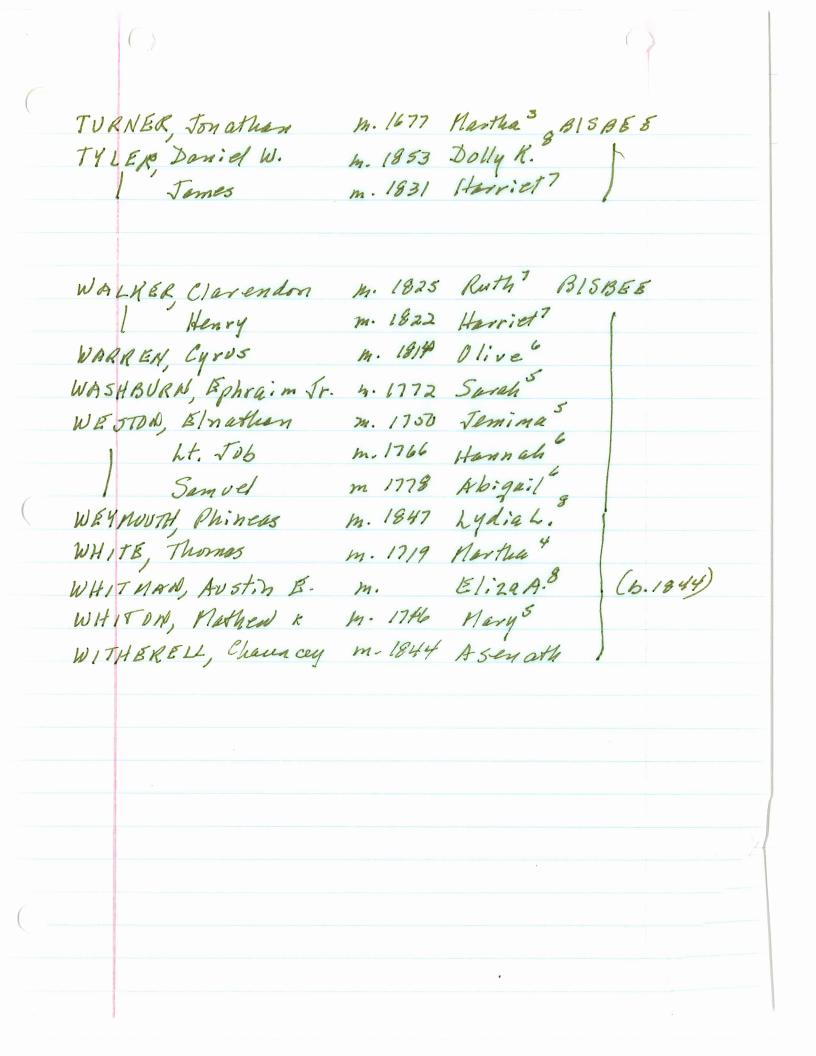 TURNER, Jonathan m. 1677 Martha³ BISBEE
TYLER, Daniel W. m. 1853 Dolly K.⁸
James m. 1831 Harriet⁷
WALKER, Clarendon m. 1825 Ruth⁷ BISBEE
Henry m. 1822 Harriet⁷
WARREN, Cyrus m. Olive⁶
WASHBURN, Ephraim Jr. m. 1772 Sarah⁵
WESTON, Elnathan m. 1750 Jemima⁵
Lt. Job m. 1766 Hannah⁶
Samuel m 1778 Abigail⁶
WEYMOUTH, Phineas m. 1847 Lydia L.⁸
WHITE, Thomas m. 1719 Martha⁴
WHITMAN, Austin E. m. Eliza A.⁸ (b. 1844)
WHITON, Mathew m. Mary⁵
WITHERELL, Chauncey m. 1844 Asenath